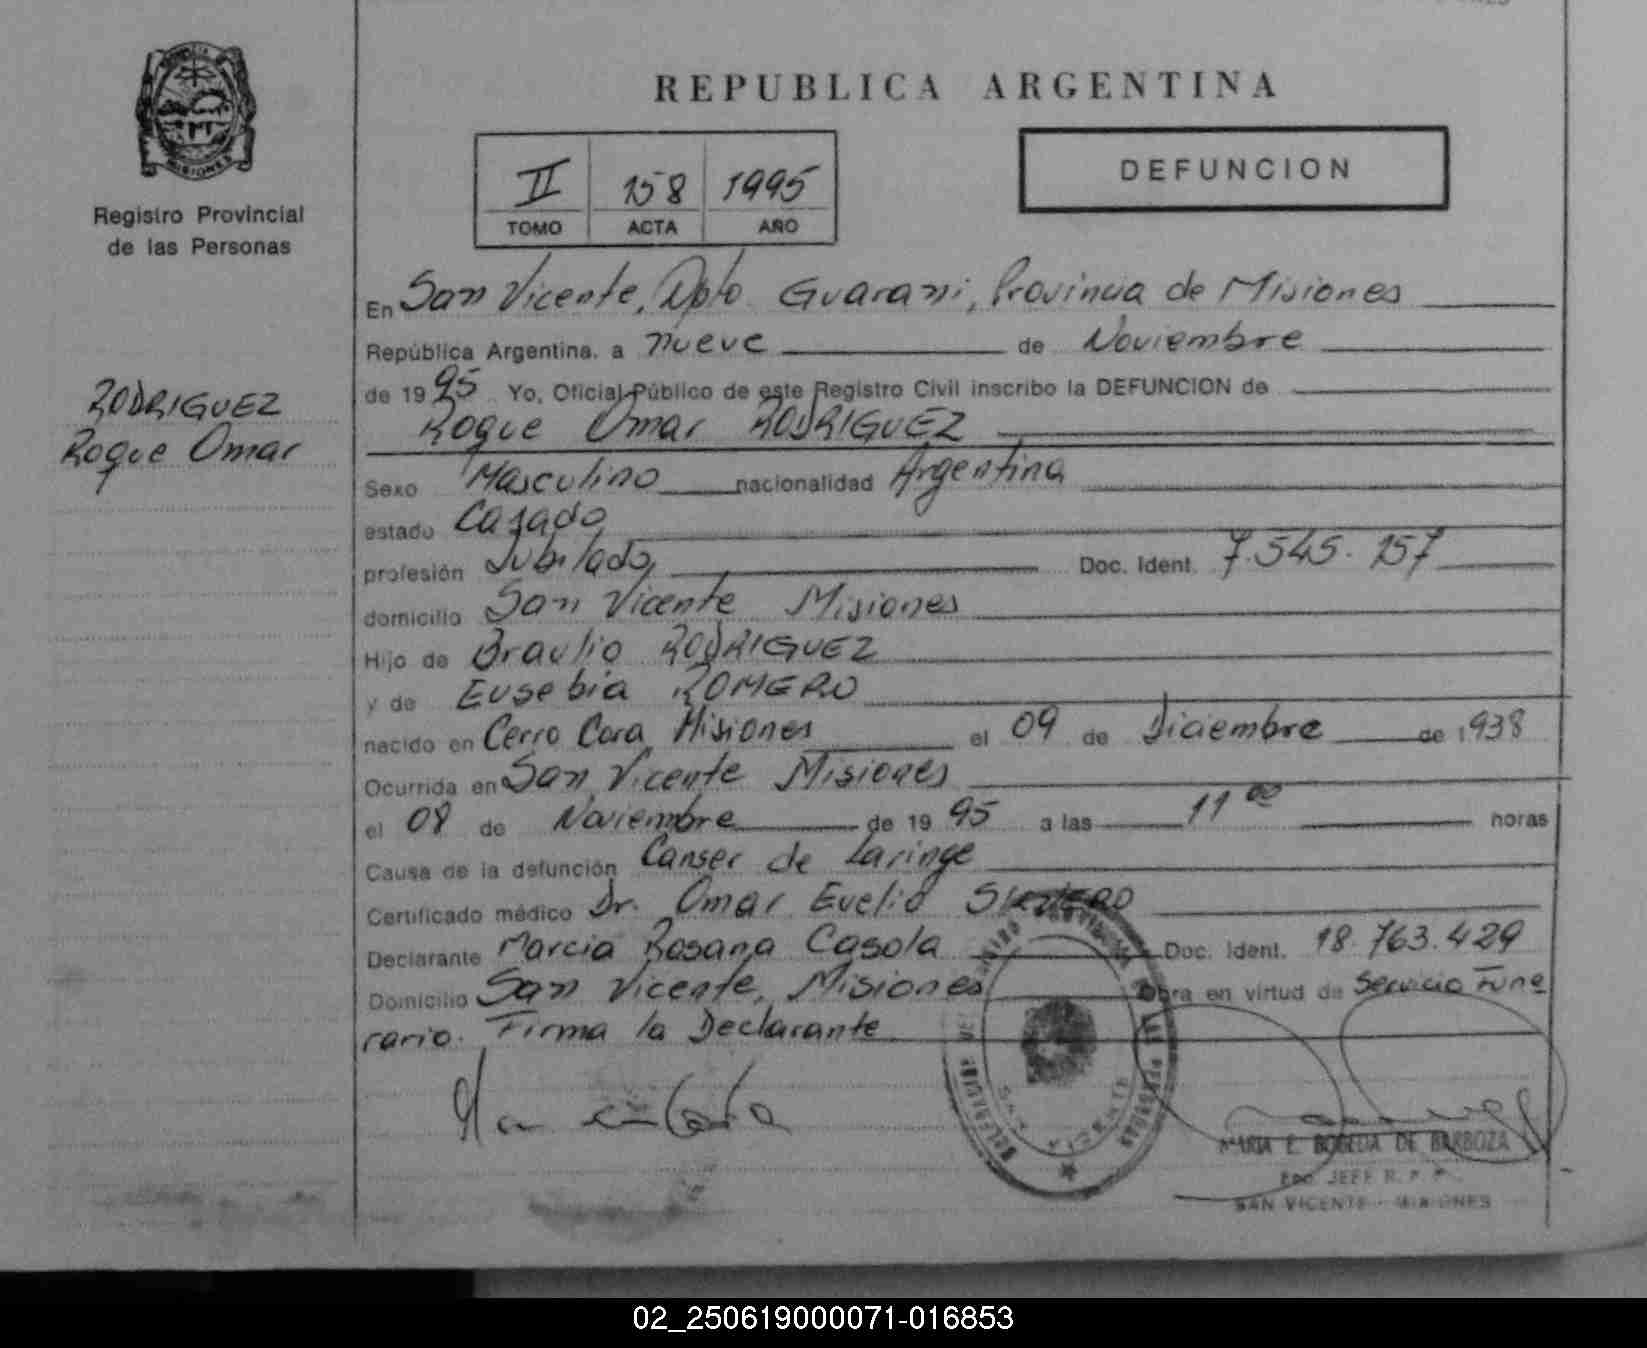 REPUBLICA ARGENTINA
MISIONES
Registro Provincial
de las Personas
II 158 1995
TOMO ACTA AÑO
DEFUNCION
RODRIGUEZ
Roque Omar
En San Vicente, Dpto Guarani, Provincia de Misiones
República Argentina, a nueve de Noviembre
de 1995 Yo, Oficial Público de este Registro Civil inscribo la DEFUNCION de
Roque Omar RODRIGUEZ
Sexo Masculino nacionalidad Argentina
estado Casado
profesión Jubilado Doc. Ident. 7.545.157
domicilio San Vicente Misiones
Hijo de Braulio RODRIGUEZ
y de Eusebia ROMERO
nacido en Cerro Cora Misiones el 09 de Diciembre de 1938
Ocurrida en San Vicente Misiones
el 08 de Noviembre de 1995 a las 11 00 horas
Causa de la defunción Canser de Laringe
Certificado médico Dr. Omar Evelio
Declarante Marcia Rosana Casola Doc. Ident. 18.763.429
Domicilio San Vicente, Misiones Obra en virtud de Servicio Fune
rario. Firma la Declarante
SAN VICENTE
MARIA E. DE BARBOZA
JEFE R. P. P.
SAN VICENTE - MISIONES
02_250619000071-016853